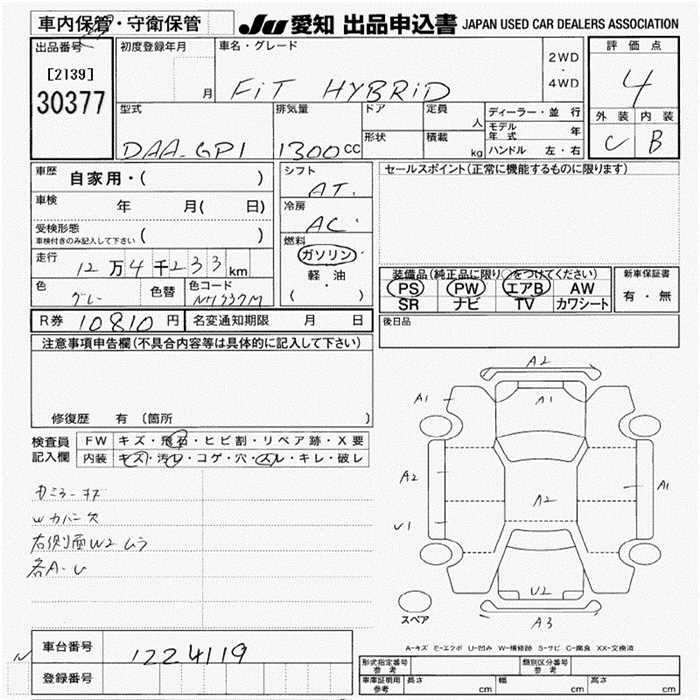 車内保管・守衛保管
JU 愛知 出品申込書 JAPAN USED CAR DEALERS ASSOCIATION
出品番号
[2139]
30377
初度登録年月
月
車名・グレード
FiT HYBRiD
2WD
・
4WD
評価点
4
外装 内装
C B
型式
DAA-GP1
排気量
1300 cc
ドア
形状
定員
人
積載
kg
ディーラー・並行
モデル年式 年
ハンドル 左・右
車歴 自家用・( )
車検 年 月( 日)
受検形態
車検付きのみ記入して下さい ( )
走行 12万4千233km
色 グレー
色替
色コード NH737M
シフト
AT
冷房
AC
燃料
ガソリン
軽油
・
( )
セールスポイント(正常に機能するものに限ります)
装備品(純正品に限り○をつけてください)
PS PW エアB AW
SR ナビ TV カワシート
新車保証書
有・無
R券 10810円 名変通知期限 月 日
後日品
注意事項申告欄(不具合内容等は具体的に記入して下さい)
修復歴 有 (箇所 )
検査員
記入欄
FW キズ・飛石・ヒビ割・リペア跡・X要
内装 キズ・汚れ・コゲ・穴・スレ・キレ・破レ
Wカバー欠
右側面W2ムラ
各A・U
A2
A1
A1
A2
A1
A2
U1
U2
A3
スペア
A-キズ E-エクボ U-凹み W-補修跡 S-サビ C-腐食 XX-交換済
車台番号 1224119
登録番号
形式指定番号
参考
類別区分番号
参考
車庫証明用
参考
長さ cm
幅 cm
高さ cm